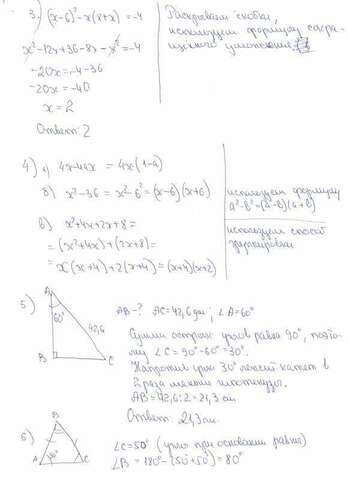 3. (x-6)² - x(8+x) = -4
Раскрываем скобки,
используем формулу сокра-
щённого умножения
x² - 12x + 36 - 8x - x² = -4
-20x = -4 - 36
-20x = -40
x = 2
Ответ: 2
4) а) 4x(1-a)
б) x² - 36 = x² - 6² = (x-6)(x+6)
используем формулу
в) x² + 4x + 2x + 8 =
используем способ
группировки
= (x² + 4x) + (2x + 8) =
= x(x+4) + 2(x+4) = (x+4)(x+2)
5)
A
60°
42,6
B
C
AB - ? AC = 42,6 ; ∠A = 60°
Сумма острых углов равна 90°, поэто-
му ∠C = 90° - 60° = 30°.
Напротив угла 30° лежит катет в
2 раза меньше гипотенузы.
AB = 42,6 : 2 = 21,3 см
Ответ: 21,3 см.
6)
B
A
C
∠C = 50° (углы при основании равны)
∠B = 180° - (50° + 50°) = 80°